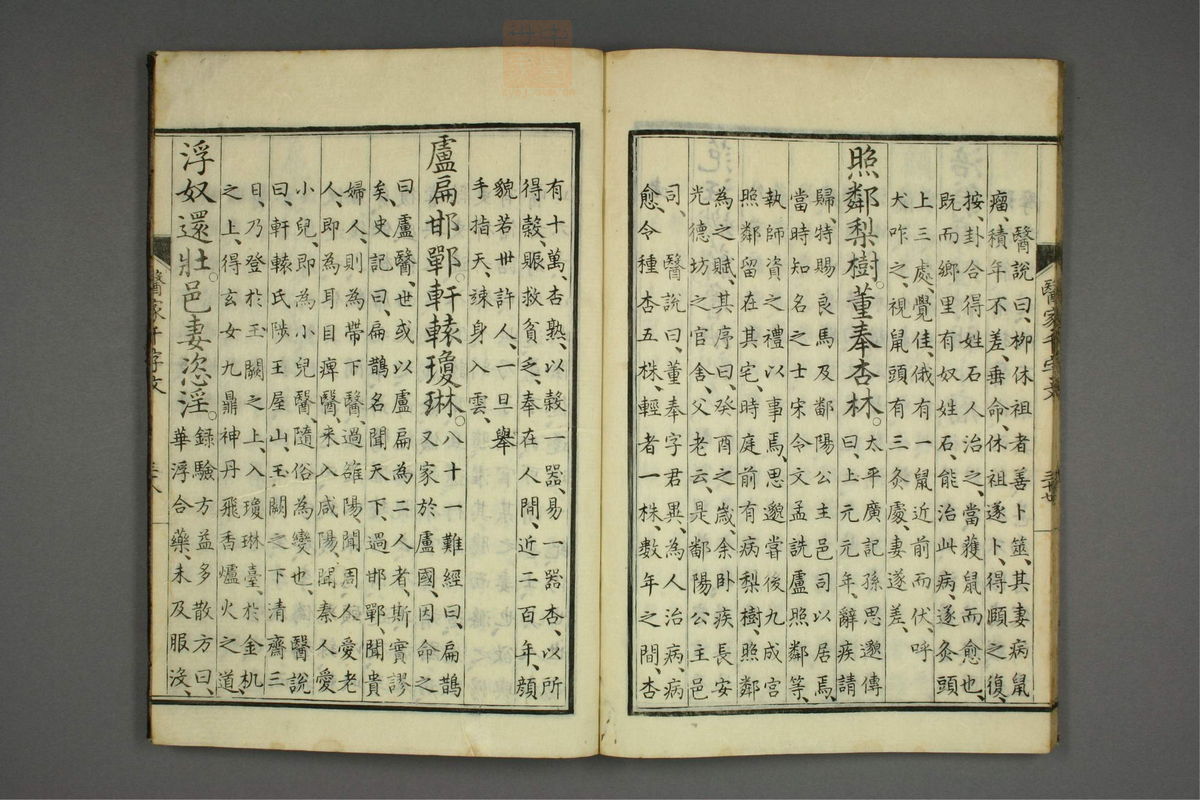 醫説曰、柳休祖者善卜筮、其妻病鼠
瘤、積年不差、垂命、休祖遂卜、得頤之復、
按卦合得姓石人治之、當獲鼠而愈也、
既而鄉里有奴姓石、能治此病、遂灸頭
上三處、覺佳、俄有一鼠近前而伏、呼
犬咋之、視鼠頭有三灸處、妻遂差、
照鄰梨樹。董奉杏林。太平廣記孫思邈傳
曰、上元元年、辭疾請
歸、特賜良馬及鄱陽公主邑司以居焉、
當時知名之士宋令文孟詵盧照鄰等、
執師資之禮以事焉、思邈嘗後九成宮
照鄰留在其宅、時庭前有病梨樹、照鄰
為之賦、其序曰、癸酉之歲、余臥疾長安
光德坊之官舍、父老云、是鄱陽公主邑
司、醫説曰、董奉字君異、為人治病、病
愈、令種杏五株、輕者一株、數年之間、杏
有十萬、杏熟、以穀一器、易一器杏、以所
得穀、賑救貧乏、奉在人間、近二百年、顏
貌若卅許人、一旦舉
手指天、竦身入雲、
盧扁邯鄲。軒轅瓊琳。八十一難經曰、扁鵲
又家於盧國、因命之
曰、盧醫、世或以盧扁為二人者、斯實謬
矣、史記曰、扁鵲名聞天下、過邯鄲、聞貴
婦人、則為帶下醫、過雒陽、聞周人愛老
人、即為耳目痺醫、來入咸陽、聞秦人愛
小兒、即為小兒醫、隨俗為變也、醫説
曰、軒轅氏陟王屋山、玉闕之下、清齋三
日、乃登於玉闕之上、入瓊琳臺、於金机
之上、得玄女九鼎神丹飛香爐火之道、
浮奴還壯。邑妻恣淫。錄驗方益多散方曰、
華浮合藥、未及服沒、
醫家千字文